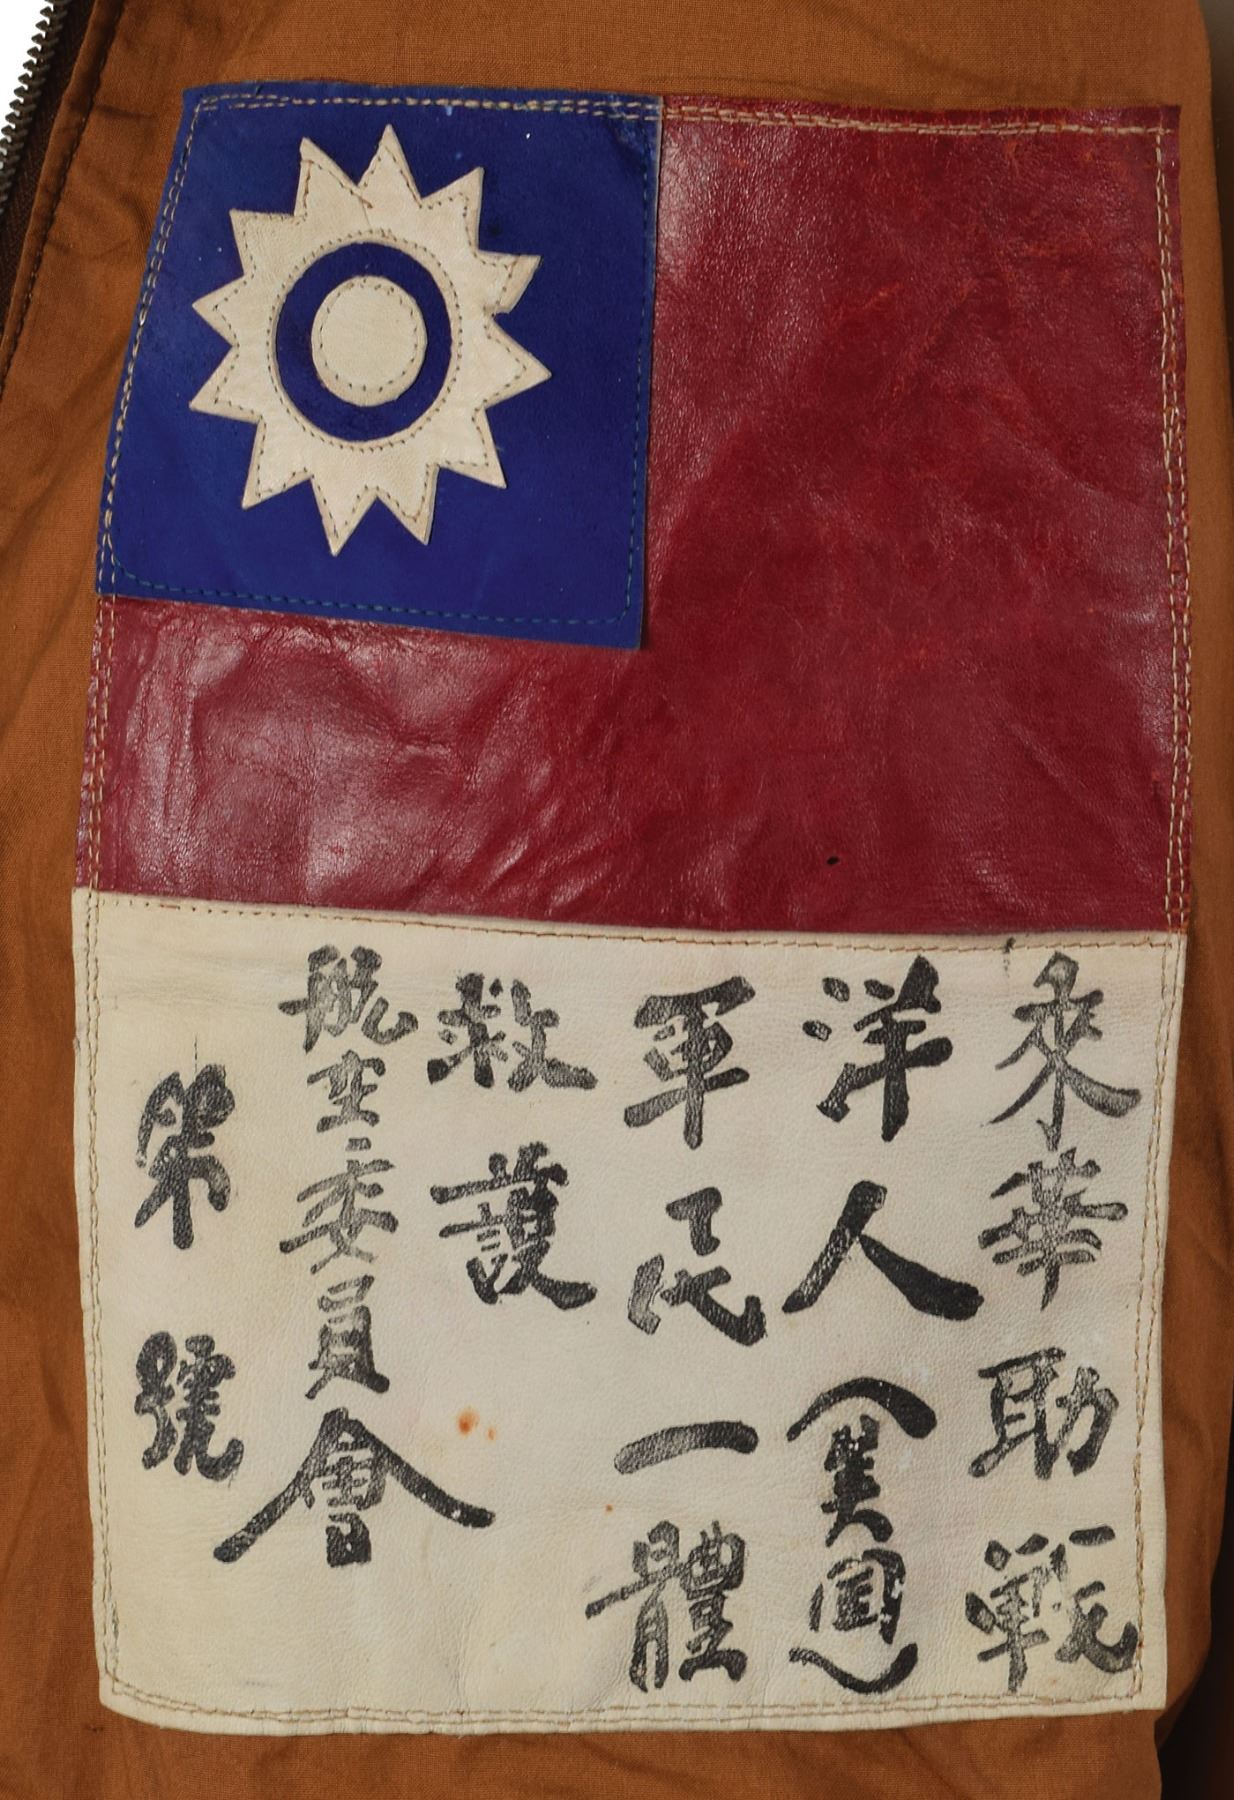 來華助戰
洋人（美國）
軍民一體
救護
航空委員會
第號